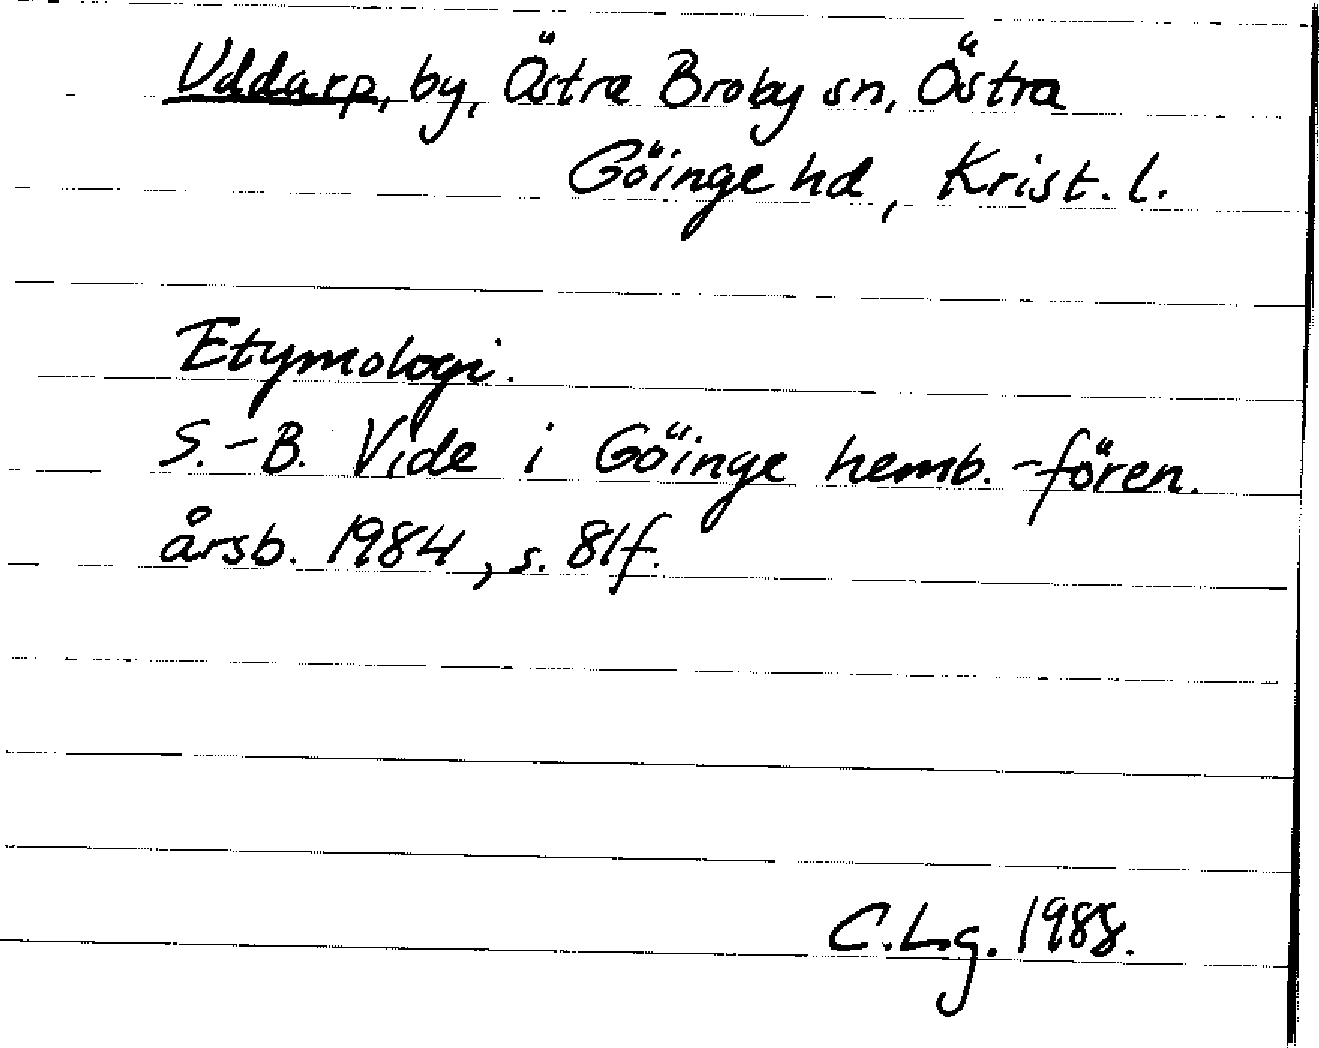 Uddarp, by, Östra Broby sn, Östra
Göinge hd, Krist. l.
Etymologi.
S.-B. Vide i Göinge hemb.-fören.
årsb. 1984, s. 81f.
C.Lg. 1988.